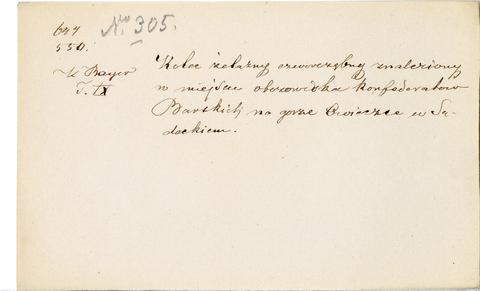 647
550.
No 305.
K Bayer
T. IX
Kolec żelazny czworozębny znaleziony
w miejscu obozowiska Konfederatów
Barskich na gorze w Są-
deckiem.